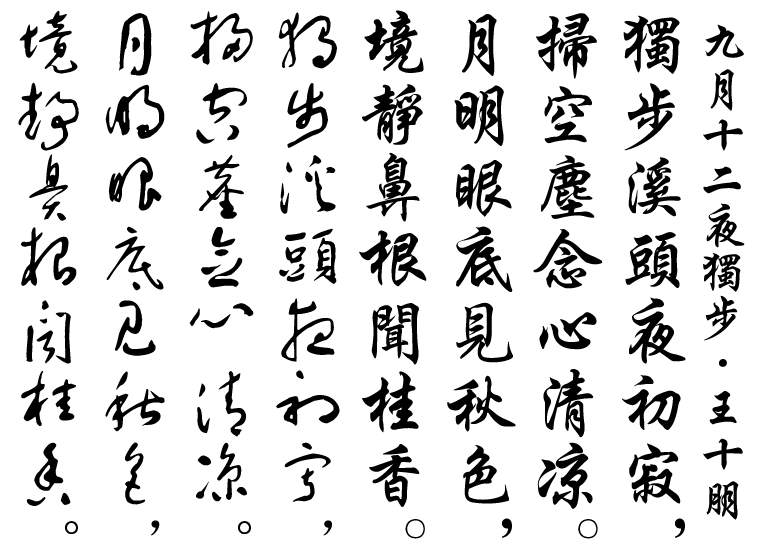 九月十二夜獨步・王十朋
獨步溪頭夜初寂，
掃空塵念心清凉。
月明眼底見秋色，
境靜鼻根聞桂香。
獨步溪頭夜初寂，
掃空塵念心清凉。
月明眼底見秋色，
境靜鼻根聞桂香。